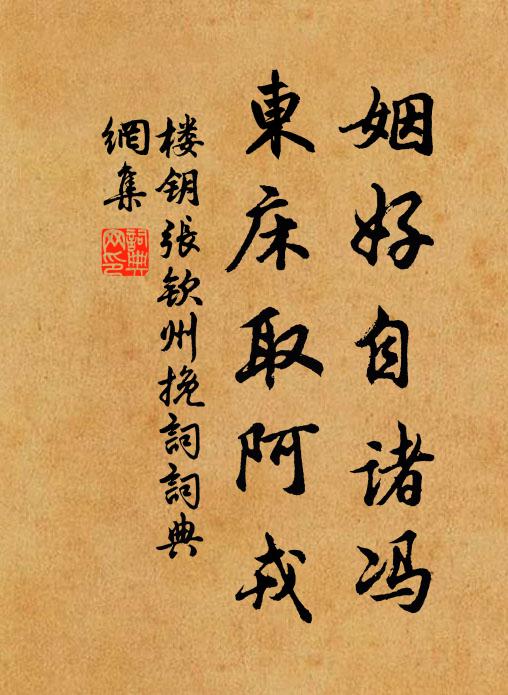 姻好自诸冯
東床取阿戎
楼钥張钦州挽詞詞典
網集
詞典網印